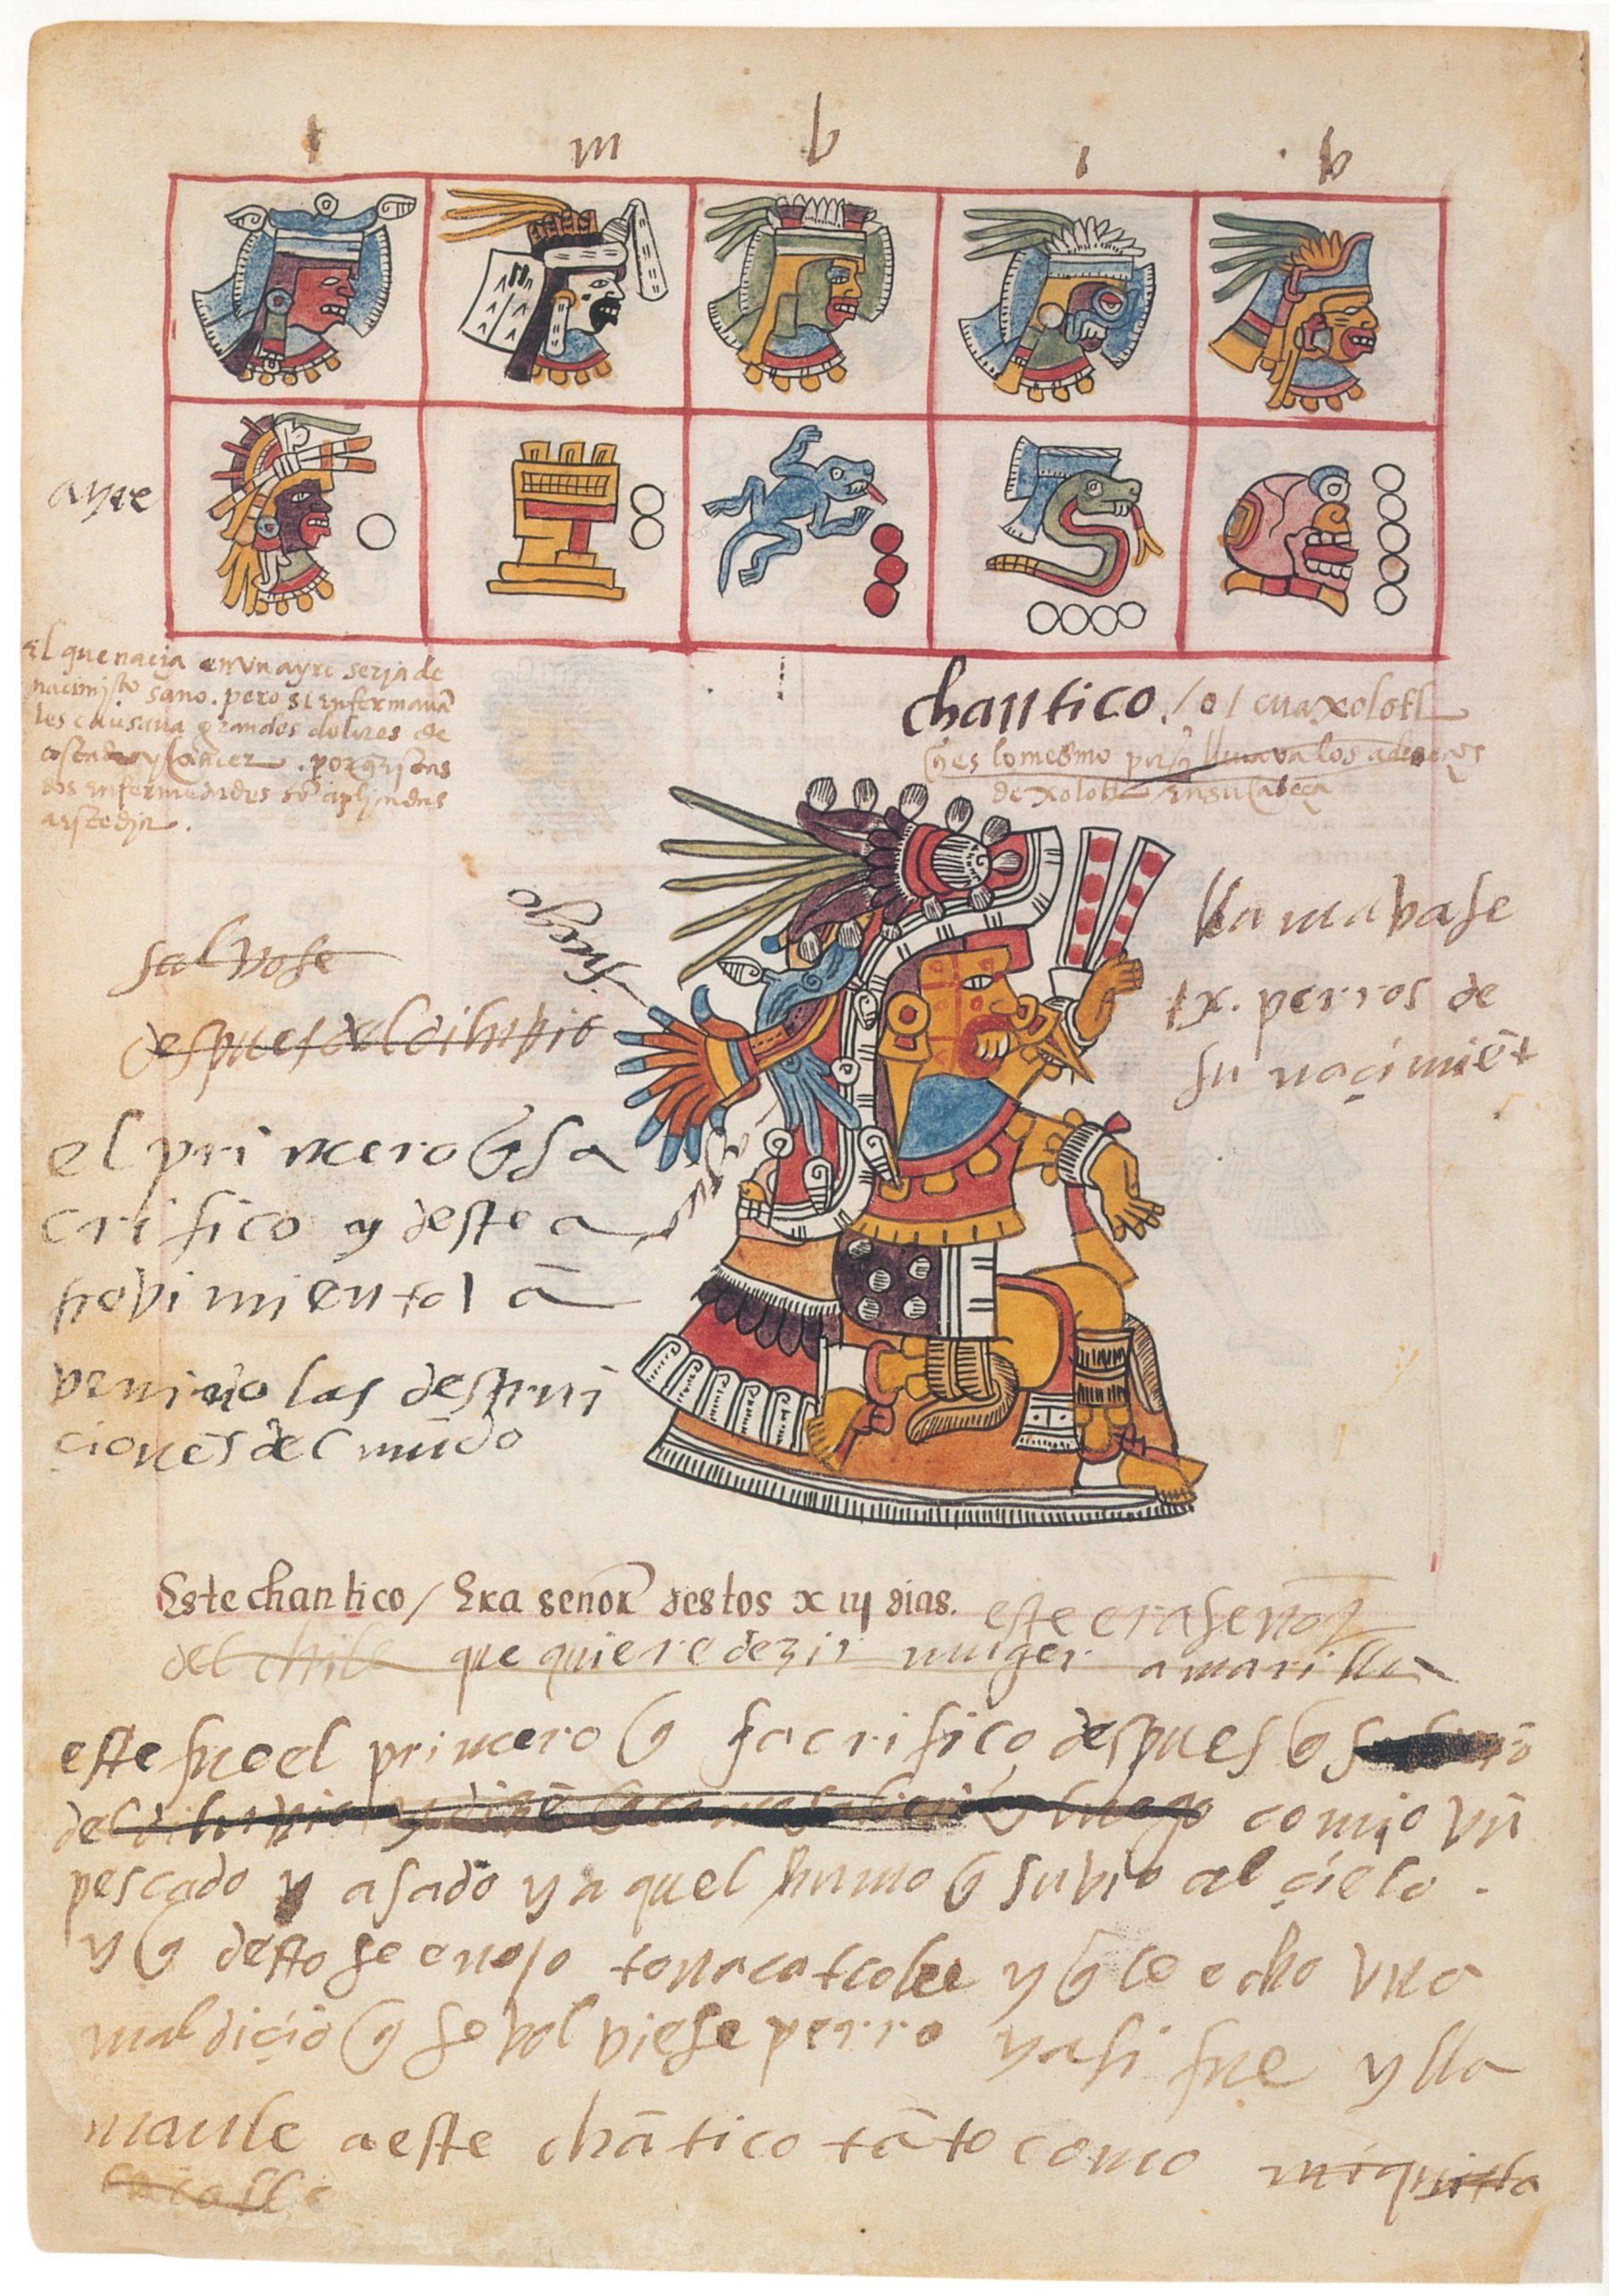 t m b i b
ayre
El que naçia en un ayre seria de
nacimiēto sano. pero si enfermauā
les causaua grandes dolores de
costado y cancer. porq̄ estas
dos enfermedades sō aplicadas
a este dia.
chantico /o/ cuaxolotl
q̄ es lo mesmo porq̄ llevava los aderezos
de xolotl en su cabeça
fuego
salvose
despues del diluvio
llamabase
ix. perros de
su naçimiēto
el primero q̄ sa
crifico y deste a
trevimiental ā
venido las destrui
çiones del mūdo
Este chantico / Era señor destos xiij dias. este era señor
del chile que quiere dezir muger amarilla
este fue el primero q̄ sacrifico despues q̄
del diluvio y dizē luego comio vn̄
pescado y asado y aquel humo q̄ subio al çielo.
y q̄ desto se enojo tonacateotle y q̄ le echo vna
maldiçiō q̄ se bolviese perro y asi fue y lla
manle a este chātico tāto como miquitla